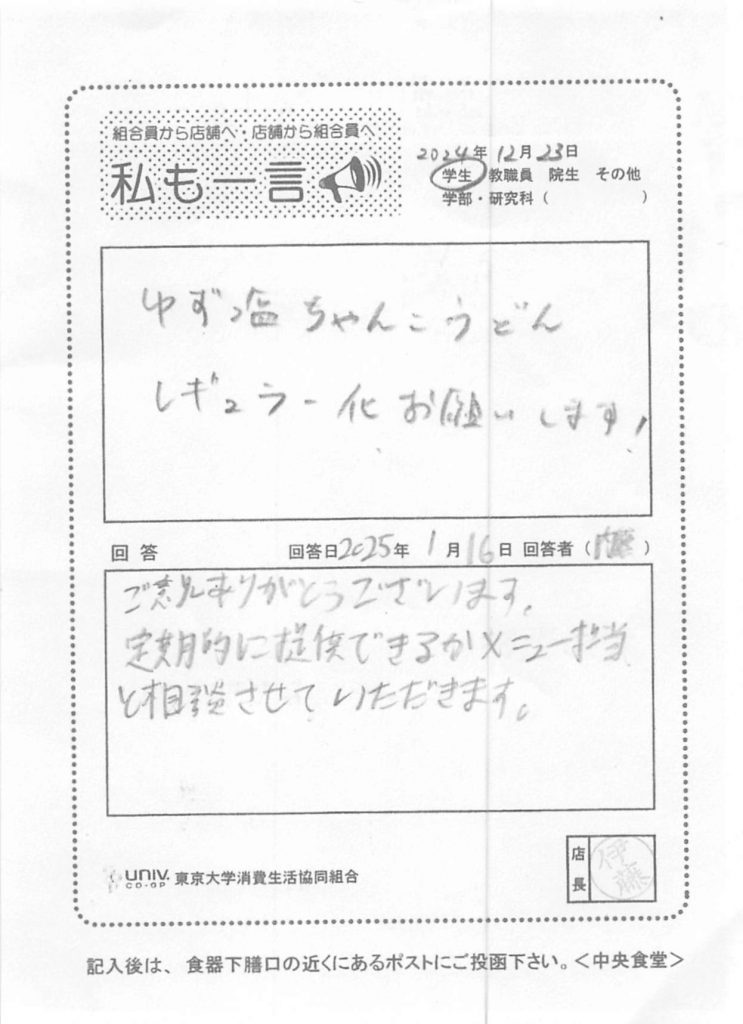 組合員から店舗へ・店舗から組合員へ
私も一言
2024年 12月 23日
学生 教職員 院生 その他
学部・研究科（ ）
ゆず塩ちゃんこうどん
レギュラー化お願いします!
回答 回答日2025年 1月16日 回答者（内藤）
ご意見ありがとうございます。
定期的に提供できるかメニュー担当
と相談させていただきます。
店長 伊藤
UNIV. CO-OP 東京大学消費生活協同組合
記入後は、食器下膳口の近くにあるポストにご投函下さい。＜中央食堂＞